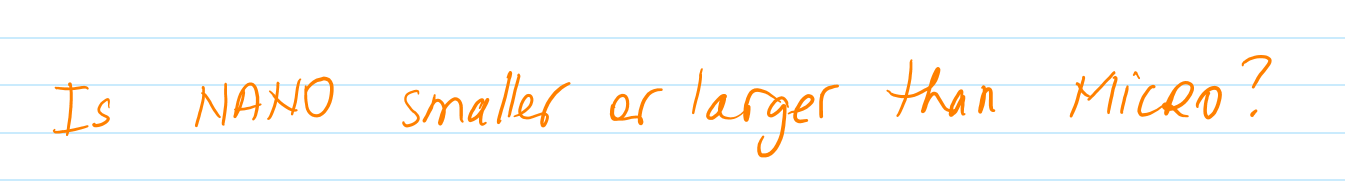 Is NANO smaller or larger than MICRO?